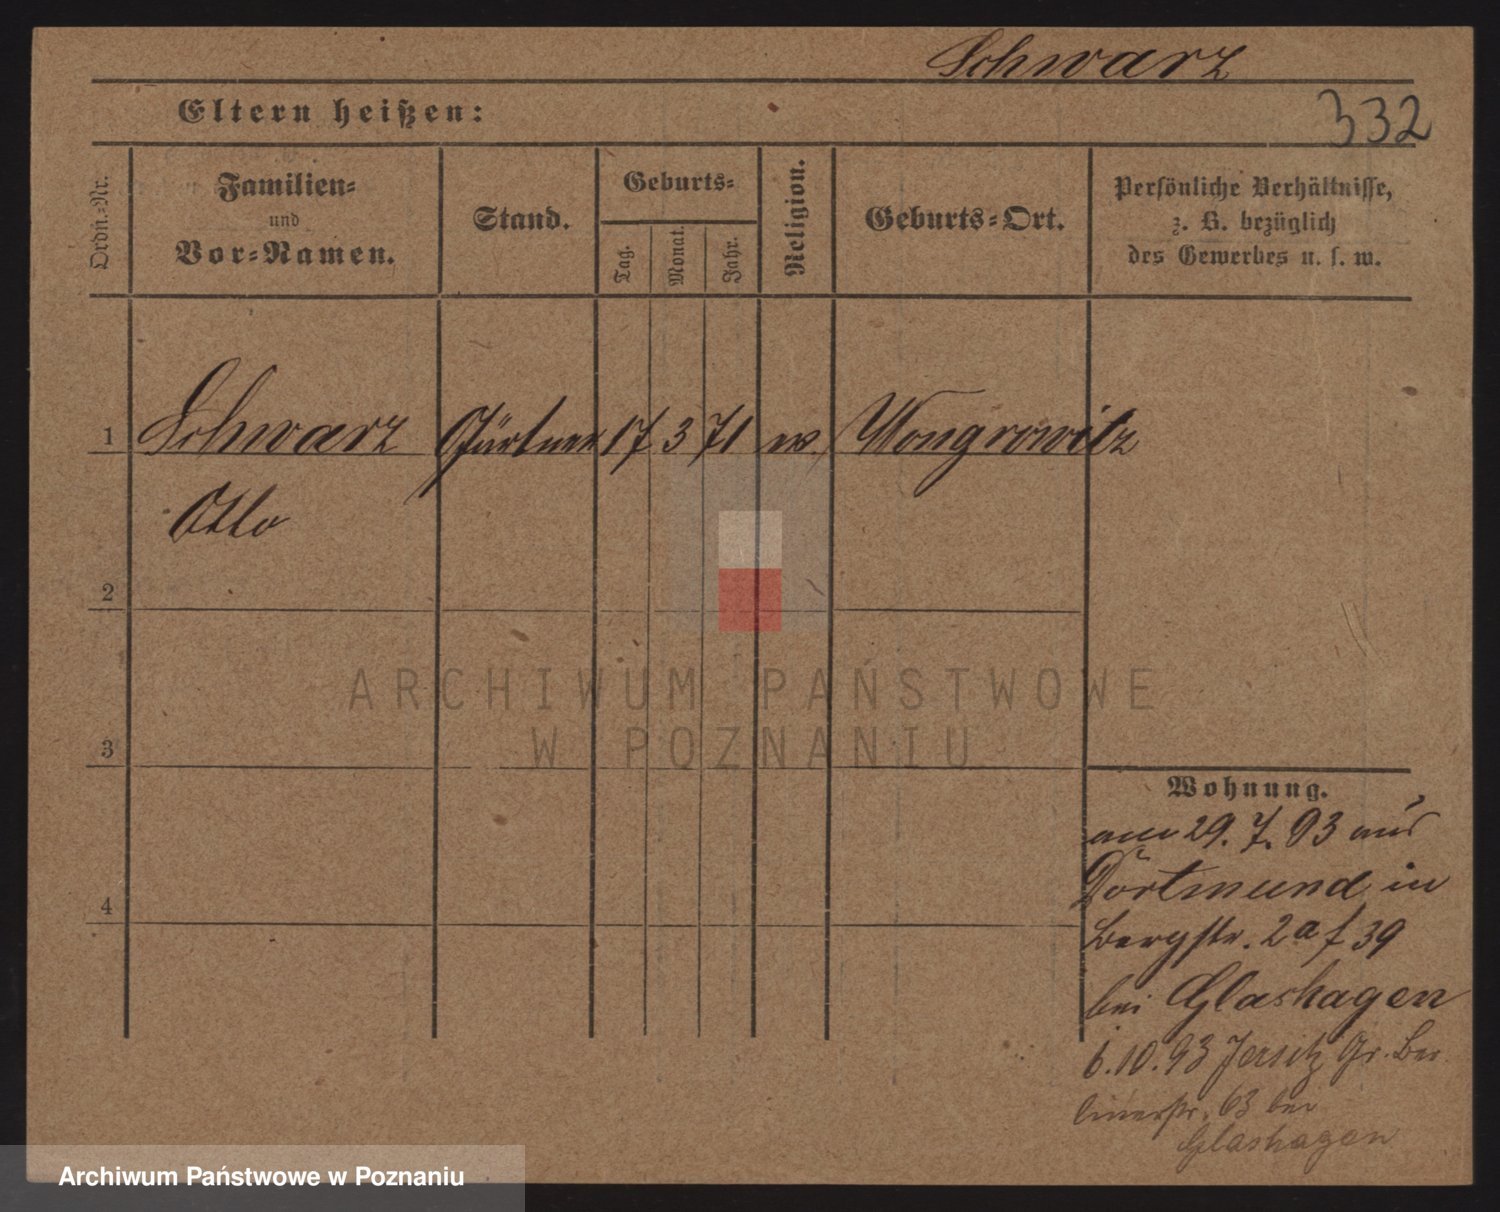 Schwarz
Eltern heißen:
332
Ordn.-Nr.
Familien-
und
Vor-Namen.
Stand.
Geburts-
Tag.
Monat.
Jahr.
Religion.
Geburts-Ort.
Persönliche Verhältnisse,
z. B. bezüglich
des Gewerbes u. s. w.
1 Schwarz Gärtner 17 3 71 ev. Wongrowitz
Otto
2
3
4
ARCHIWUM PAŃSTWOWE
W POZNANIU
Wohnung.
am 29. 7. 93 aus
Dortmund in
Bergstr. 2a f 39
bei Glashagen
6. 10. 93 Jersitz Gr. Ber
linerstr. 63 bei
Glashagen
Archiwum Państwowe w Poznaniu